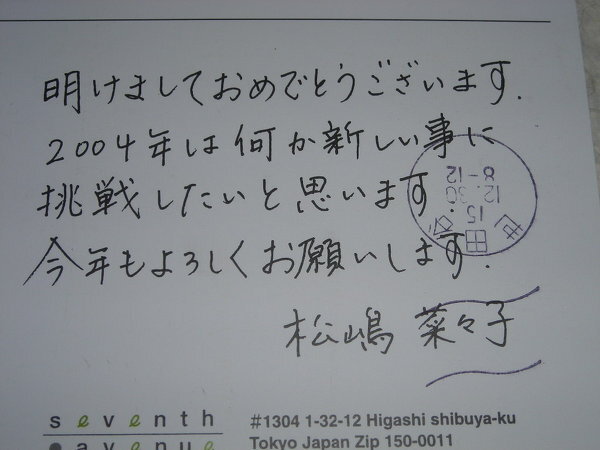 明けましておめでとうございます.
2004年は何か新しい事に
挑戦したいと思います.
今年もよろしくお願いします.
松嶋 菜々子
世田谷
15
12.30
8-12
seventh
avenue
#1304 1-32-12 Higashi shibuya-ku
Tokyo Japan Zip 150-0011